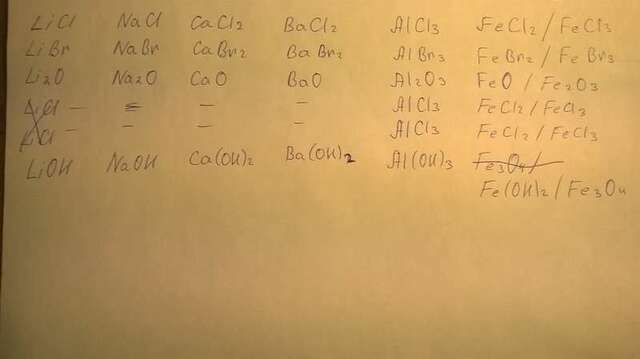 LiCl NaCl CaCl2 BaCl2 AlCl3 FeCl2 / FeCl3
LiBr NaBr CaBr2 BaBr2 AlBr3 FeBr2 / FeBr3
Li2O Na2O CaO BaO Al2O3 FeO / Fe2O3
– – – AlCl3 FeCl2 / FeCl3
– – – – AlCl3 FeCl2 / FeCl3
LiOH NaOH Ca(OH)2 Ba(OH)2 Al(OH)3 Fe3O4 /
Fe(OH)2 / Fe3O4